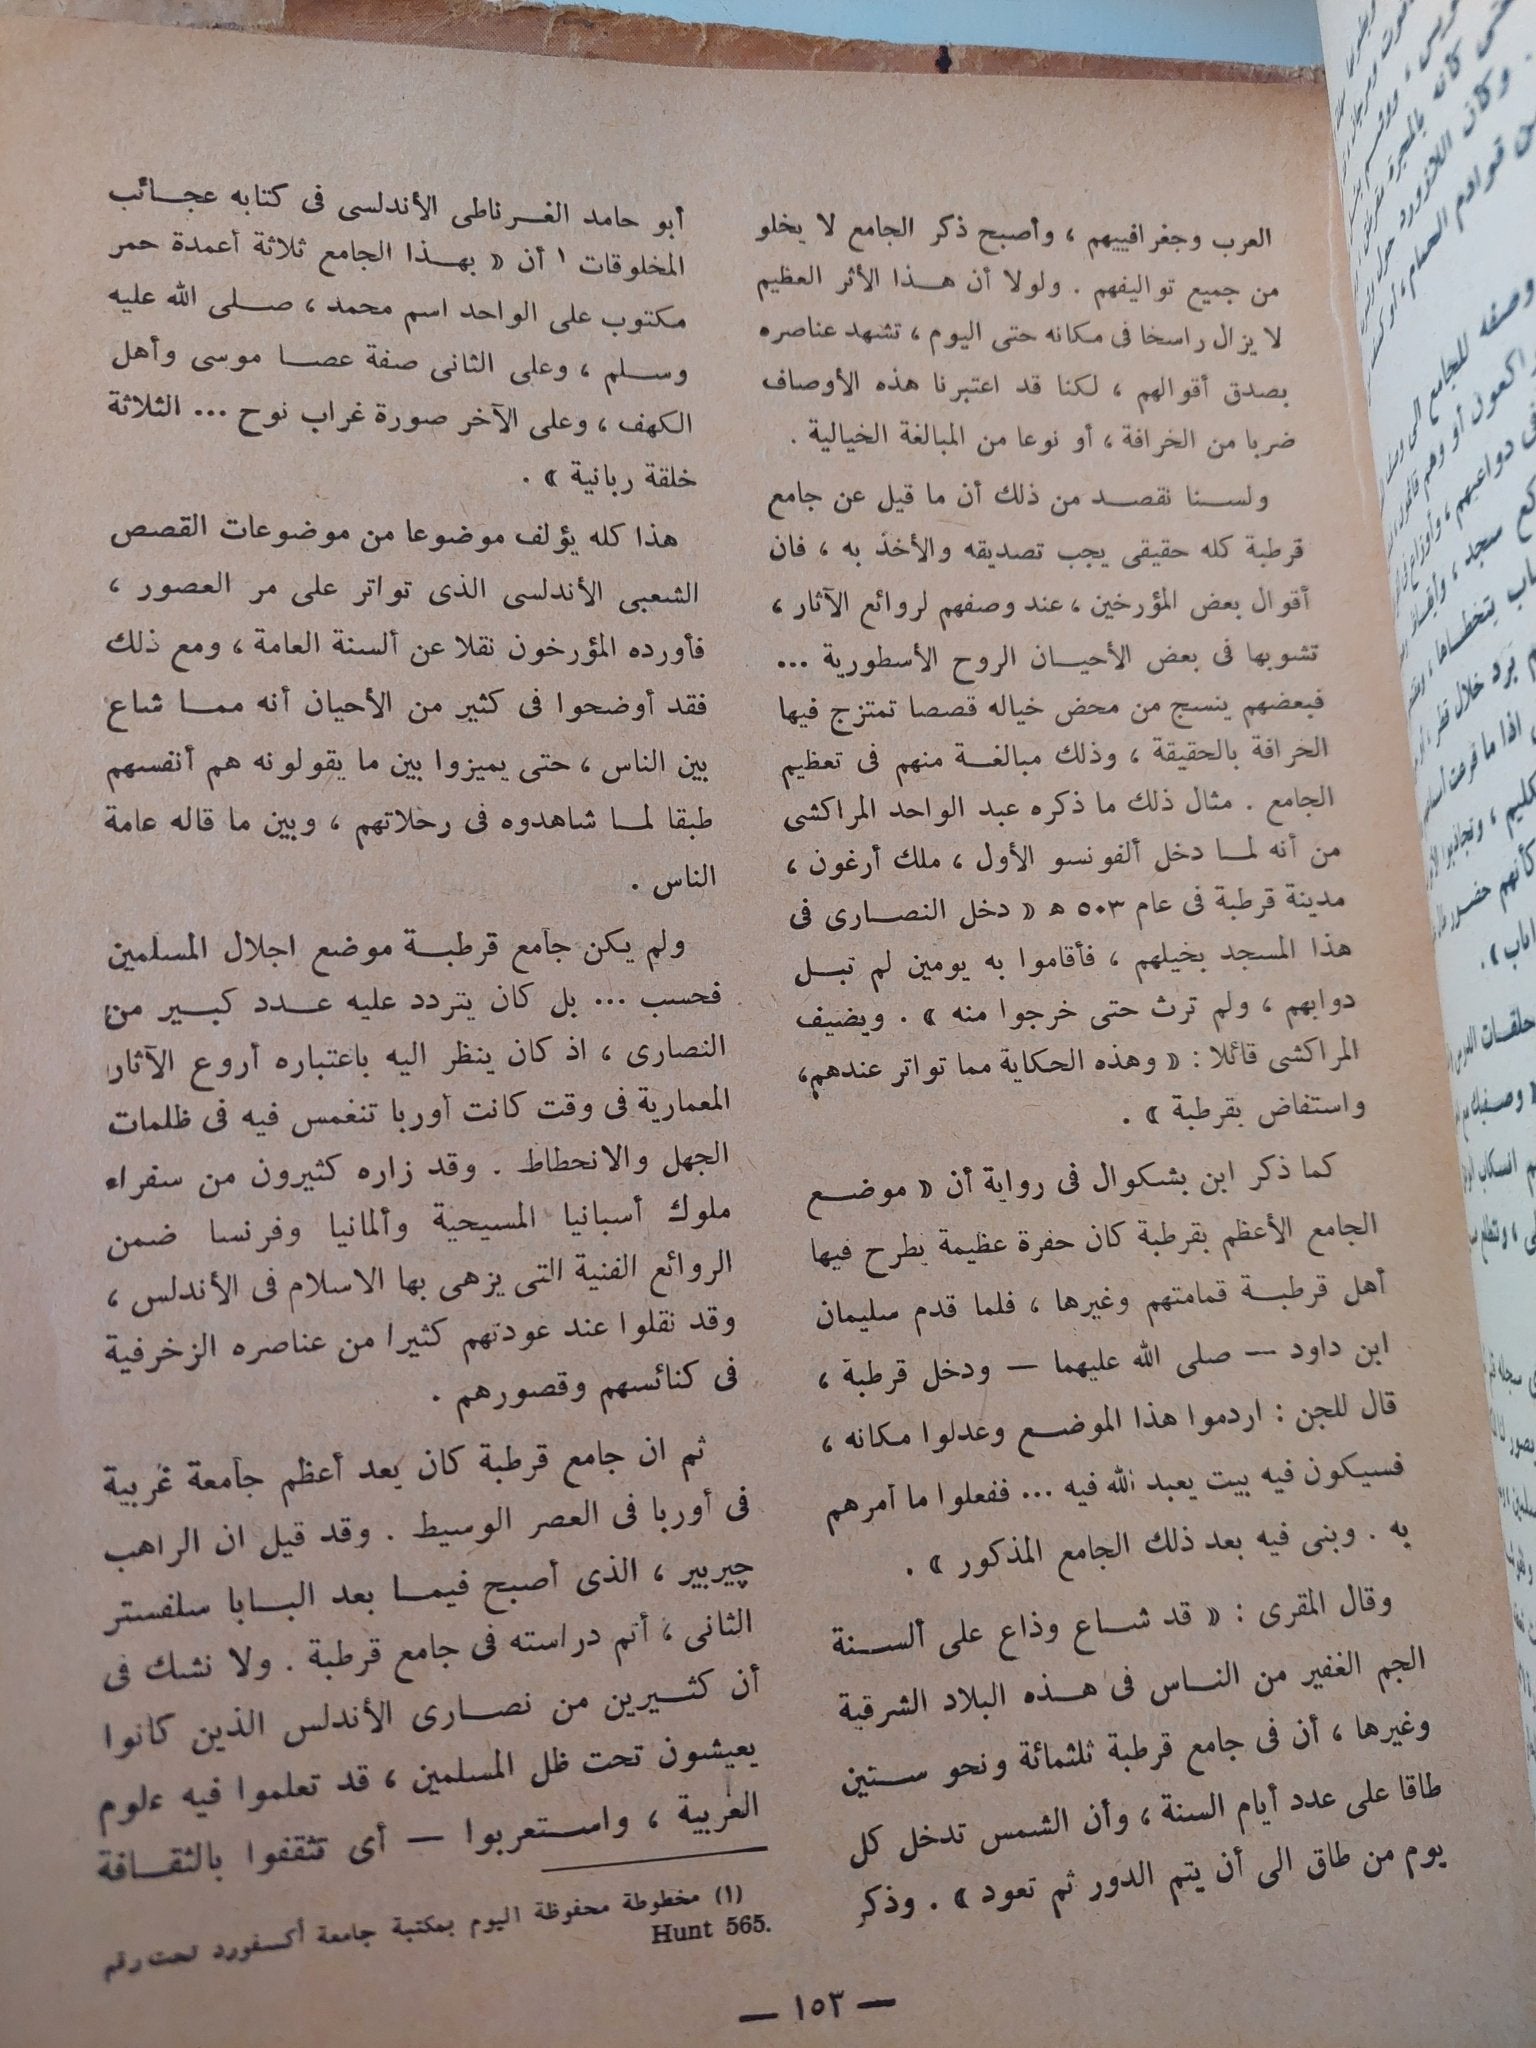 العرب وجغرافييهم ، وأصبح ذكر الجامع لا يخلو
من جميع تواليفهم . ولولا أن هـذا الأثر العظيم
لا يزال راسخا فى مكانه حتى اليوم ، تشهد عناصره
بصدق أقوالهم ، لكنا قد اعتبرنا هذه الأوصاف
ضربا من الخرافة ، أو نوعا من المبالغة الخيالية .
ولسـنا نقصـد من ذلك أن ما قيل عن جامع
قرطبة كله حقيقى يجب تصديقه والأخذ به ، فان
أقوال بعض المؤرخين ، عند وصفهم لروائع الآثار ،
تشوبها فى بعض الأحيـان الروح الأسطورية ...
فبعضهم ينسج من محض خياله قصصا تمتزج فيها
الخرافة بالحقيقة ، وذلك مبالغـة منهم فى تعظيم
الجامع . مثال ذلك ما ذكره عبد الواحد المراكشى
من أنه لمـا دخل ألفونسو الأول ، ملك أرغون ،
مدينة قرطبة فى عام ٥٠٣ هـ « دخل النصـارى فى
هذا المسجد بخيلهم ، فأقاموا به يومين لم تبـل
دوابهم ، ولم ترث حتى خرجوا منه » . ويضيف
المراكشى قائلا : « وهذه الحكاية مما تواتر عندهم،
واستفاض بقرطبة » .
كما ذكر ابن بشكوال فى رواية أن « موضـع
الجامع الأعظم بقرطبة كان حفرة عظيمة يطرح فيها
أهل قرطبـة قمامتهم وغيرها ، فلما قدم سليمان
ابن داود — صلى الله عليهما — ودخل قرطبة ،
قال للجن : اردموا هذا الموضـع وعدلوا مكانه ،
فسيكون فيه بيت يعبد الله فيه ... ففعلوا ما أمرهم
به . وبنى فيه بعد ذلك الجامع المذكور » .
وقال المقرى : « قد شـاع وذاع على ألسـنة
الجم الغفير من النـاس فى هـذه البلاد الشرقية
وغيرها ، أن فى جامع قرطبة ثلثمائة ونحو سـتين
طاقا على عدد أيام السنة ، وأن الشمس تدخل كل
يوم من طاق الى أن يتم الدور ثم تعود » . وذكر
أبو حامد الغـرناطى الأندلسى فى كتابه عجـائب
المخلوقات ١ أن « بهـذا الجامع ثلاثة أعمدة حمر
مكتوب على الواحد اسم محمد ، صـلى الله عليه
وسـلم ، وعلى الثانى صفة عصـا موسى وأهل
الكهف ، وعلى الآخر صورة غراب نوح ... الثلاثة
خلقة ربانية » .
هذا كله يؤلف موضوعا من موضوعات القصص
الشعبى الأندلسى الذى تواتر على مر العصور ،
فأورده المؤرخون نقلا عن ألسنة العامة ، ومع ذلك
فقد أوضحوا فى كثير من الأحيان أنه ممـا شاع
بين الناس ، حتى يميزوا بين ما يقولونه هم أنفسهم
طبقا لمـا شاهدوه فى رحلاتهم ، وبين ما قاله عامة
الناس .
ولم يكن جامع قرطبـة موضع اجلال المسلمين
فحسب ... بل كان يتردد عليه عـدد كبـير من
النصارى ، اذ كان ينظر اليه باعتباره أروع الآثار
المعمارية فى وقت كانت أوربا تنغمس فيه فى ظلمات
الجهل والانحطاط . وقد زاره كثيرون من سفراء
ملوك أسبانيا المسيحية وألمانيا وفرنسا ضمن
الروائع الفنية التى يزهى بها الاسلام فى الأندلس ،
وقد نقلوا عند عودتهم كثيرا من عناصره الزخرفية
فى كنائسهم وقصورهم .
ثم ان جامع قرطبة كان يعد أعظم جامعة غربية
فى أوربا فى العصر الوسيط . وقد قيل ان الراهب
چيربير ، الذى أصبح فيمـا بعد البـابا سلفستر
الثانى ، أتم دراسته فى جامع قرطبة . ولا نشك فى
أن كثـيرين من نصـارى الأندلس الذين كانوا
يعيشون تحت ظل المسلمين ، قد تعلموا فيه علوم
العربية ، واسـتعربوا — أى تثقفوا بالثقـافة
(١) مخطوطة محفوظة اليوم بمكتبة جامعة أكسفورد تحت رقم
Hunt 565.
— ١٥٣ —